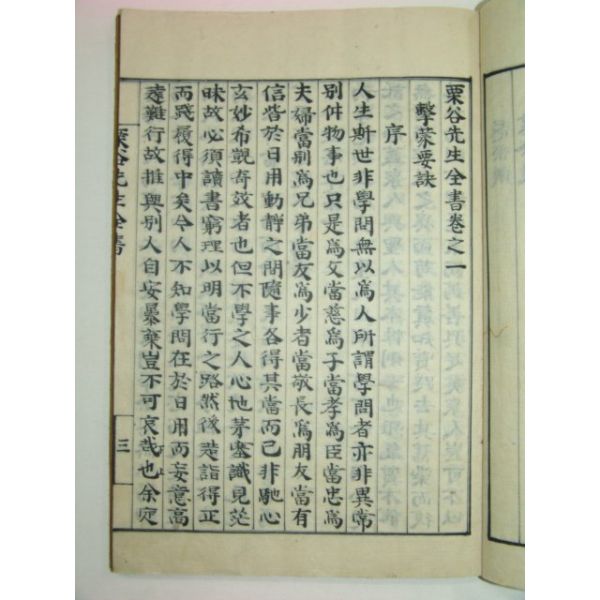 栗谷先生全書卷之一
擊蒙要訣
序
人生斯世非學問無以爲人所謂學問者亦非異常
別件物事也只是爲父當慈爲子當孝爲臣當忠爲
夫婦當別爲兄弟當友爲少者當敬長爲朋友當有
信皆於日用動靜之間隨事各得其當而已非馳心
玄妙布覬奇效者也但不學之人心地茅塞識見茫
昧故必須讀書窮理以明當行之路然後造詣得正
而踐履得中矣今人不知學問在於日用而妄意高
遠難行故推與別人自安暴棄豈不可哀哉也余定
栗谷先生全書
三